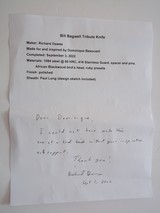 Bill Bagwell Tribute Knife
Maker: Richard Dawes
Made for and inspired by Dominique Beaucant
Completed: September 3, 2022
Materials: 1084 steel @ 60 HRC, 416 Stainless Guard, spacer and pins,
African Blackwood bird's beak, ruby presets
Finish: polished
Sheath: Paul Long (design assent included)
Dear Dominique,
I could not have made this
one of a kind knife without your inspiration
and support.
Thank you!